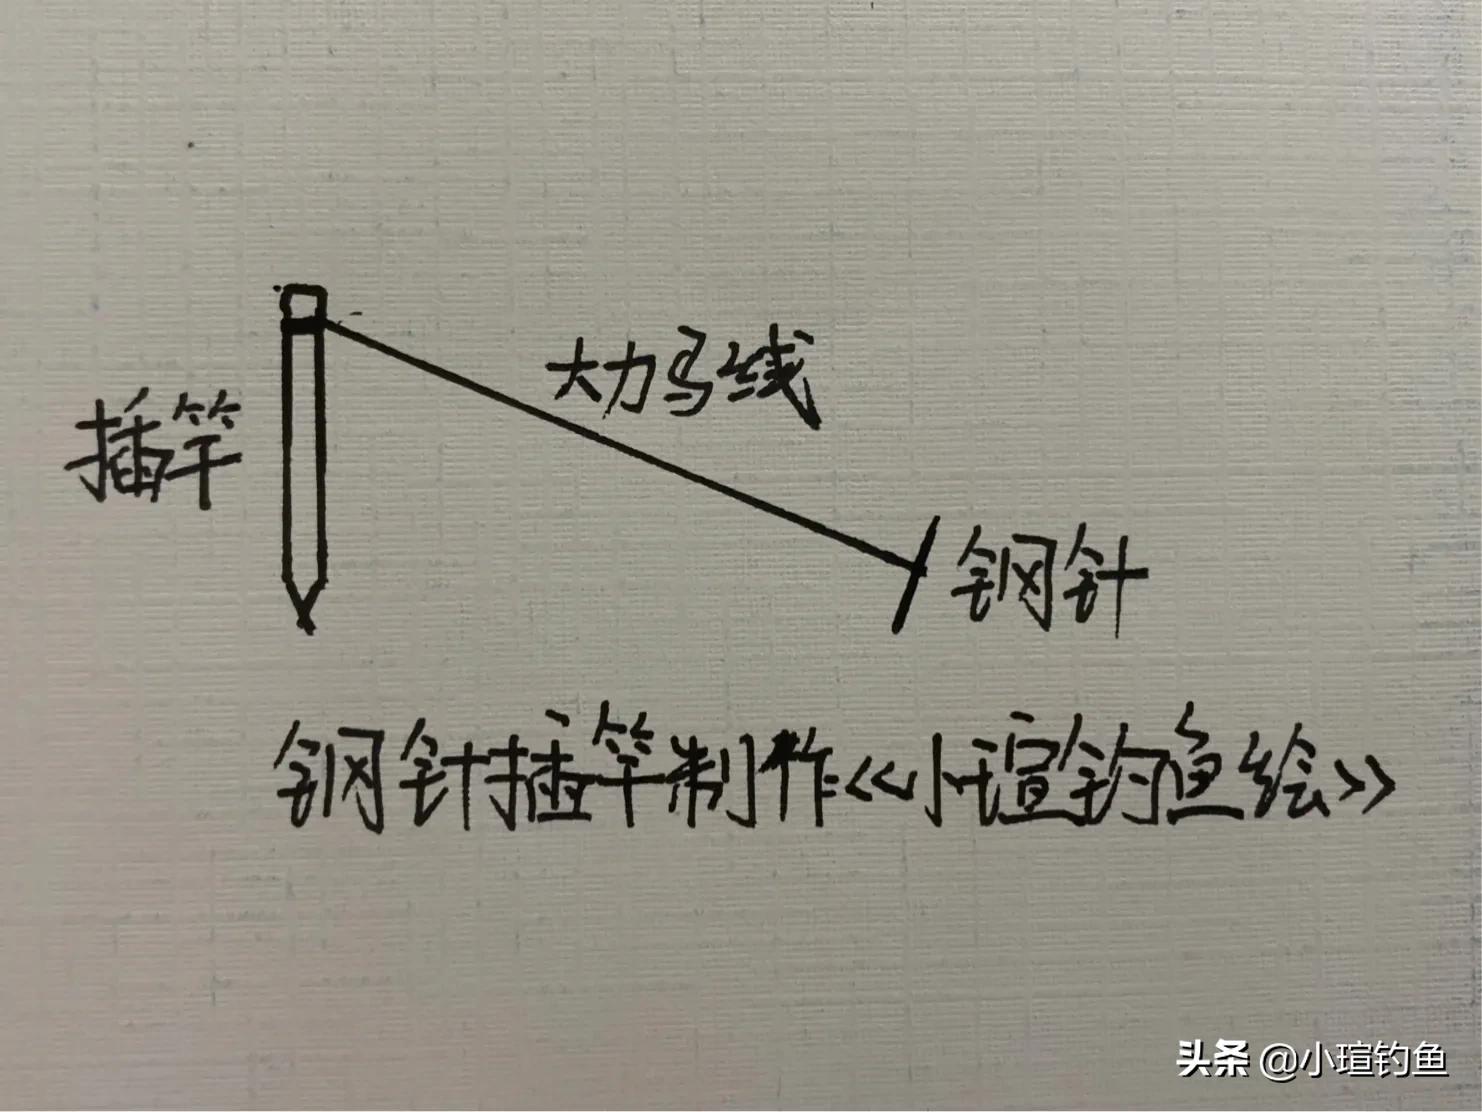 大力马线
插竿
钢针
钢针插竿制作《小瑄钓鱼绘》
头条 @小瑄钓鱼